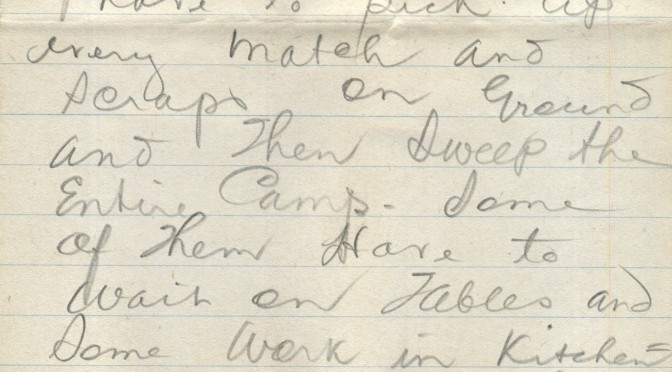 have to pick up
every match and
Scraps on Ground
and Then Sweep the
Entire Camp- Some
of Them Have to
Wait on Tables and
Some Work in Kitchen=